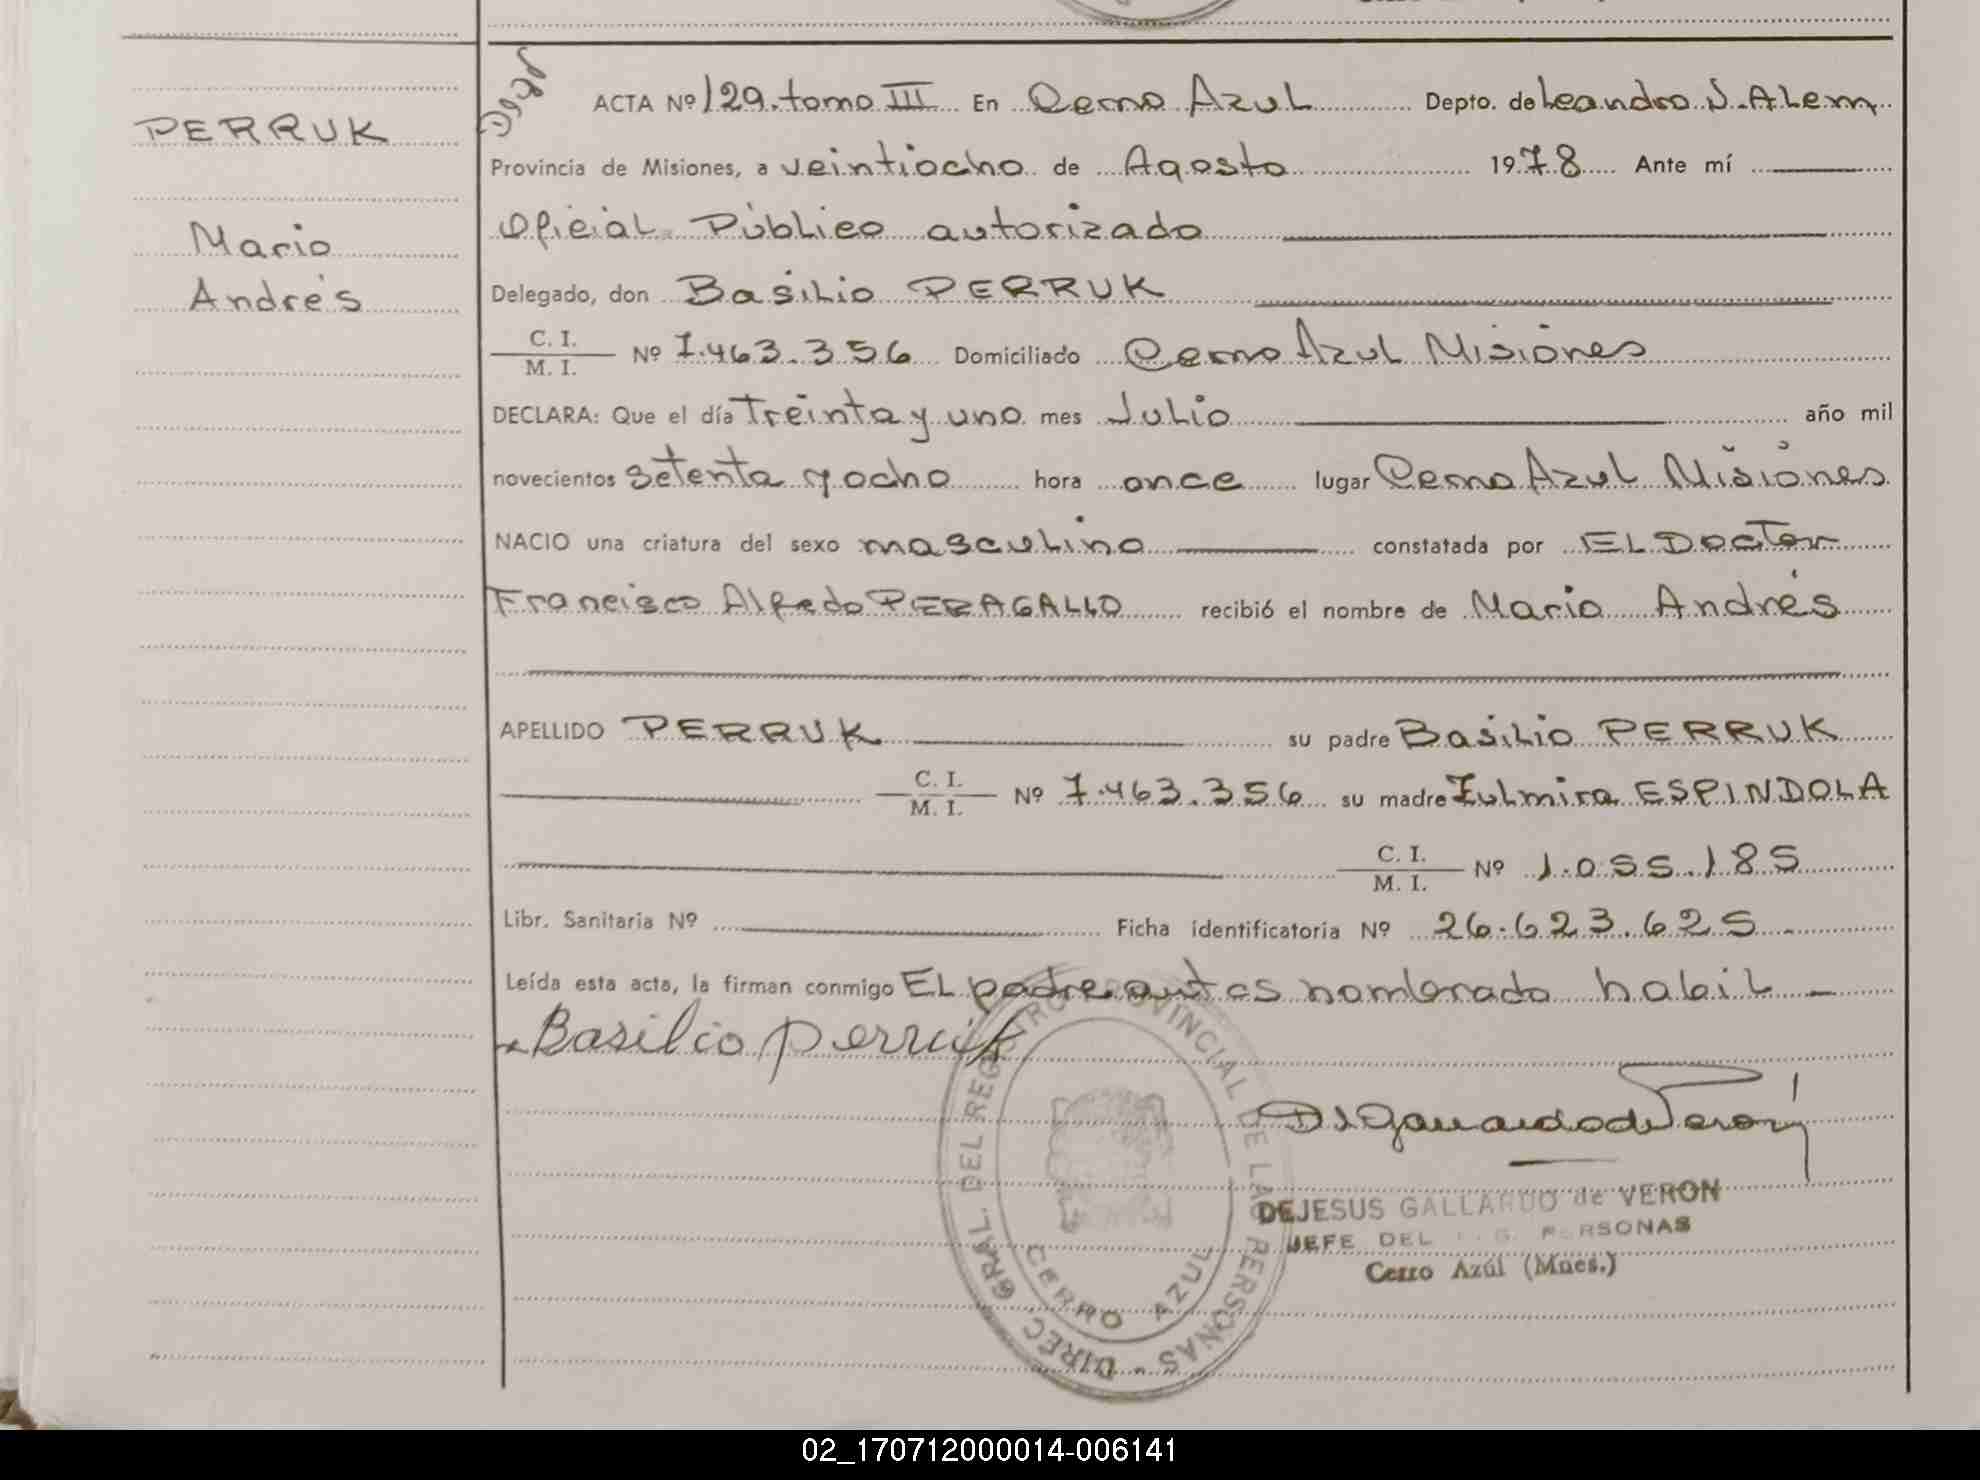 PERRUK
Mario
Andrés
ACTA Nº 129. tomo III En Cerro Azul Depto. de Leandro N. Alem
Provincia de Misiones, a veintiocho de Agosto 1978 Ante mí
Oficial Público autorizado
Delegado, don Basilio PERRUK
C. I.
M. I.
Nº 7.463.356 Domiciliado Cerro Azul Misiones
DECLARA: Que el día Treinta y uno mes Julio año mil
novecientos setenta y ocho hora once lugar Cerro Azul Misiones
NACIO una criatura del sexo masculino constatada por EL Doctor
Francisco Alfredo PERAGALLO recibió el nombre de Mario Andrés
APELLIDO PERRUK su padre Basilio PERRUK
C. I.
M. I.
Nº 7.463.356 su madre Zulmira ESPINDOLA
C. I.
M. I.
Nº 1.055.185
Libr. Sanitaria Nº Ficha identificatoria Nº 26.623.625
Leída esta acta, la firman conmigo EL padre antes nombrado habil
Basilio Perruk
DIREC. GRAL. DEL REGISTRO PROVINCIAL DE LAS PERSONAS -
CERRO AZUL
DEJESUS GALLARDO de VERON
JEFE DEL PERSONAS
Cerro Azúl (Mnes.)
02_170712000014-006141